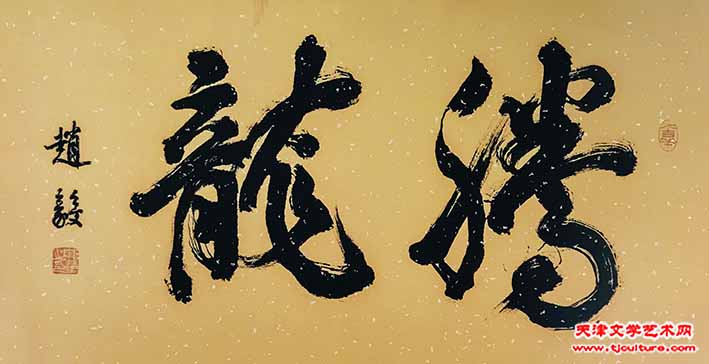 騰龍
趙毅
天津文学艺术网
www.tjculture.com